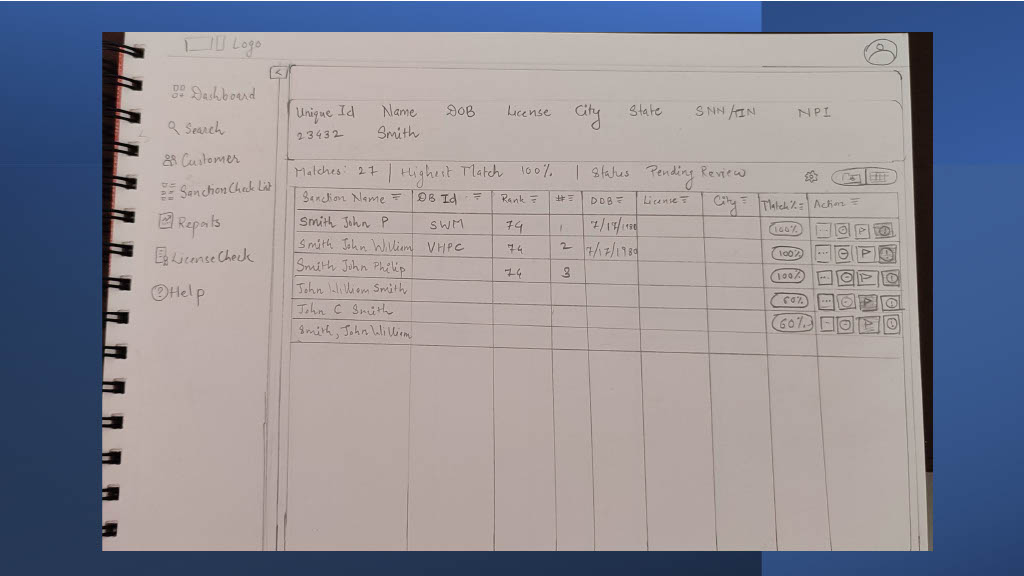 Logo
<
Dashboard
Search
Customer
Sanction Check List
Reports
License Check
? Help
Unique Id Name DOB License City State SNN/TIN NPI
23432 Smith
Matches: 27 | Highest Match 100% | Status Pending Review
Sanction Name DB Id Rank # DOB License City Match% Action
Smith John P SWM 74 1 7/17/1980 100%
Smith John William VHPC 74 2 7/17/1980 100%
Smith John Philip 74 3 100%
John William Smith 60%
John C Smith 60%
Smith, John William